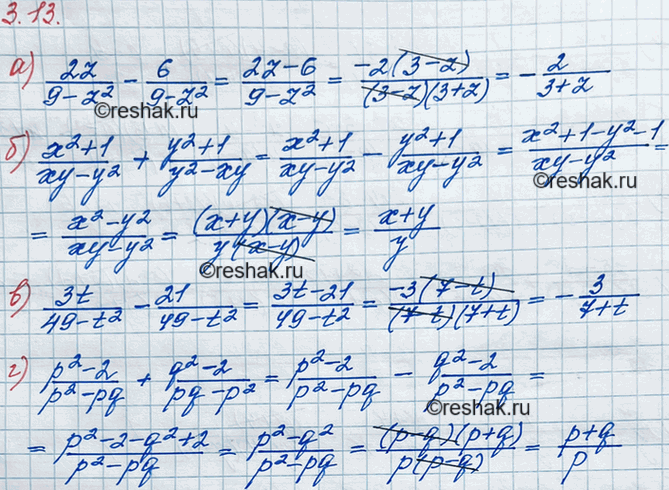 3.13.
а) 2z/(9-z²) - 6/(9-z²) = (2z-6)/(9-z²) = -2(3-z)/((3-z)(3+z)) = -2/(3+z)
©reshak.ru
б) (x²+1)/(xy-y²) + (y²+1)/(y²-xy) = (x²+1)/(xy-y²) - (y²+1)/(xy-y²) = (x²+1-y²-1)/(xy-y²) =
©reshak.ru
= (x²-y²)/(xy-y²) = (x+y)(x-y)/(y(x-y)) = (x+y)/y
©reshak.ru
в) 3t/(49-t²) - 21/(49-t²) = (3t-21)/(49-t²) = -3(7-t)/((7-t)(7+t)) = -3/(7+t)
г) (p²-2)/(p²-pq) + (q²-2)/(pq-p²) = (p²-2)/(p²-pq) - (q²-2)/(p²-pq) =
©reshak.ru
= (p²-2-q²+2)/(p²-pq) = (p²-q²)/(p²-pq) = (p-q)(p+q)/(p(p-q)) = (p+q)/p
©reshak.ru